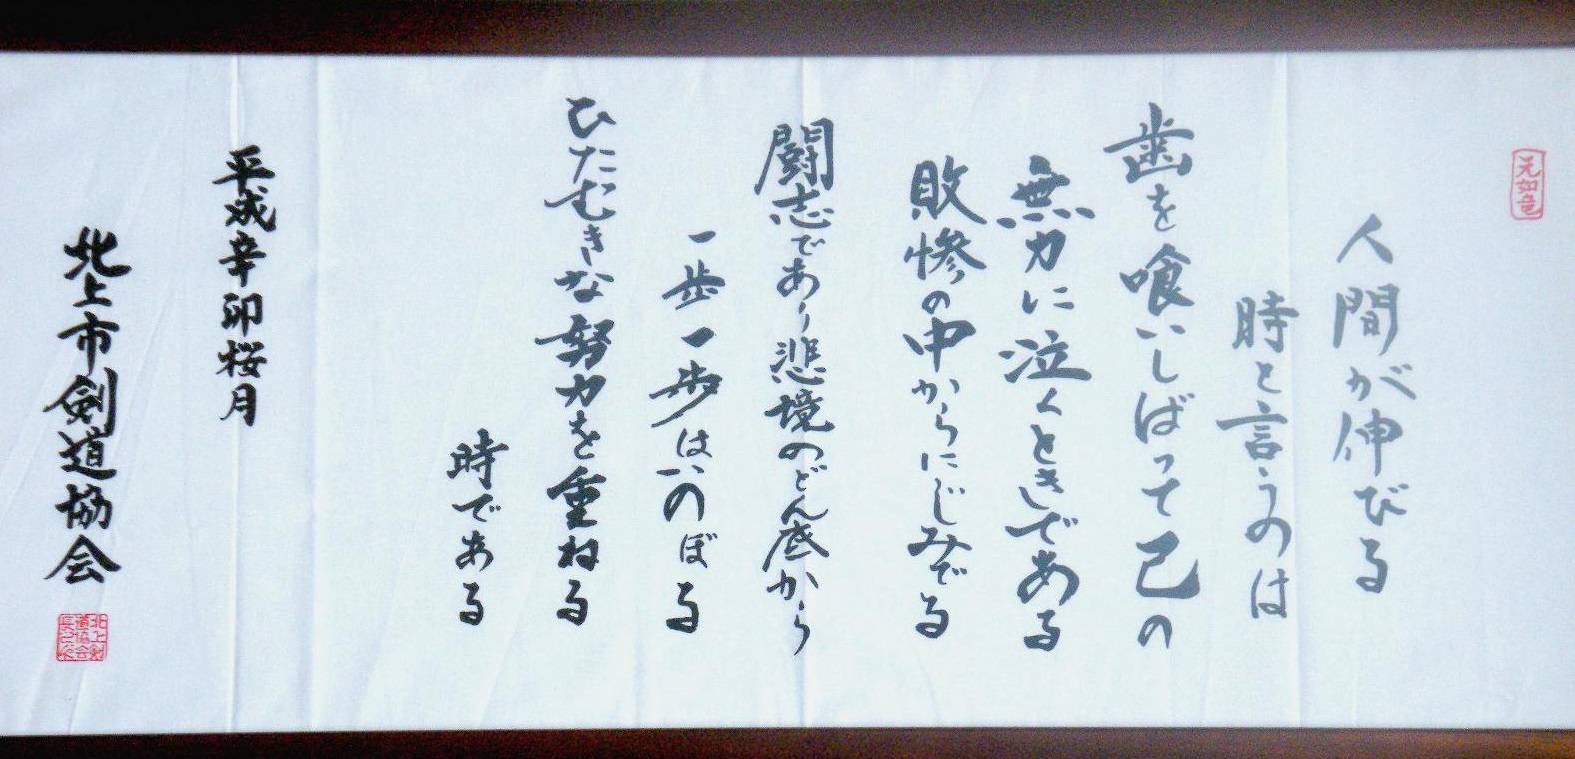 人間が伸びる
時と言うのは
歯を喰いしばって己の
無力に泣くときである
敗惨の中からにじみでる
闘志であり悲境のどん底から
一歩一歩はいのぼる
ひたむきな努力を重ねる
時である
平成辛卯桜月
北上市剣道協会